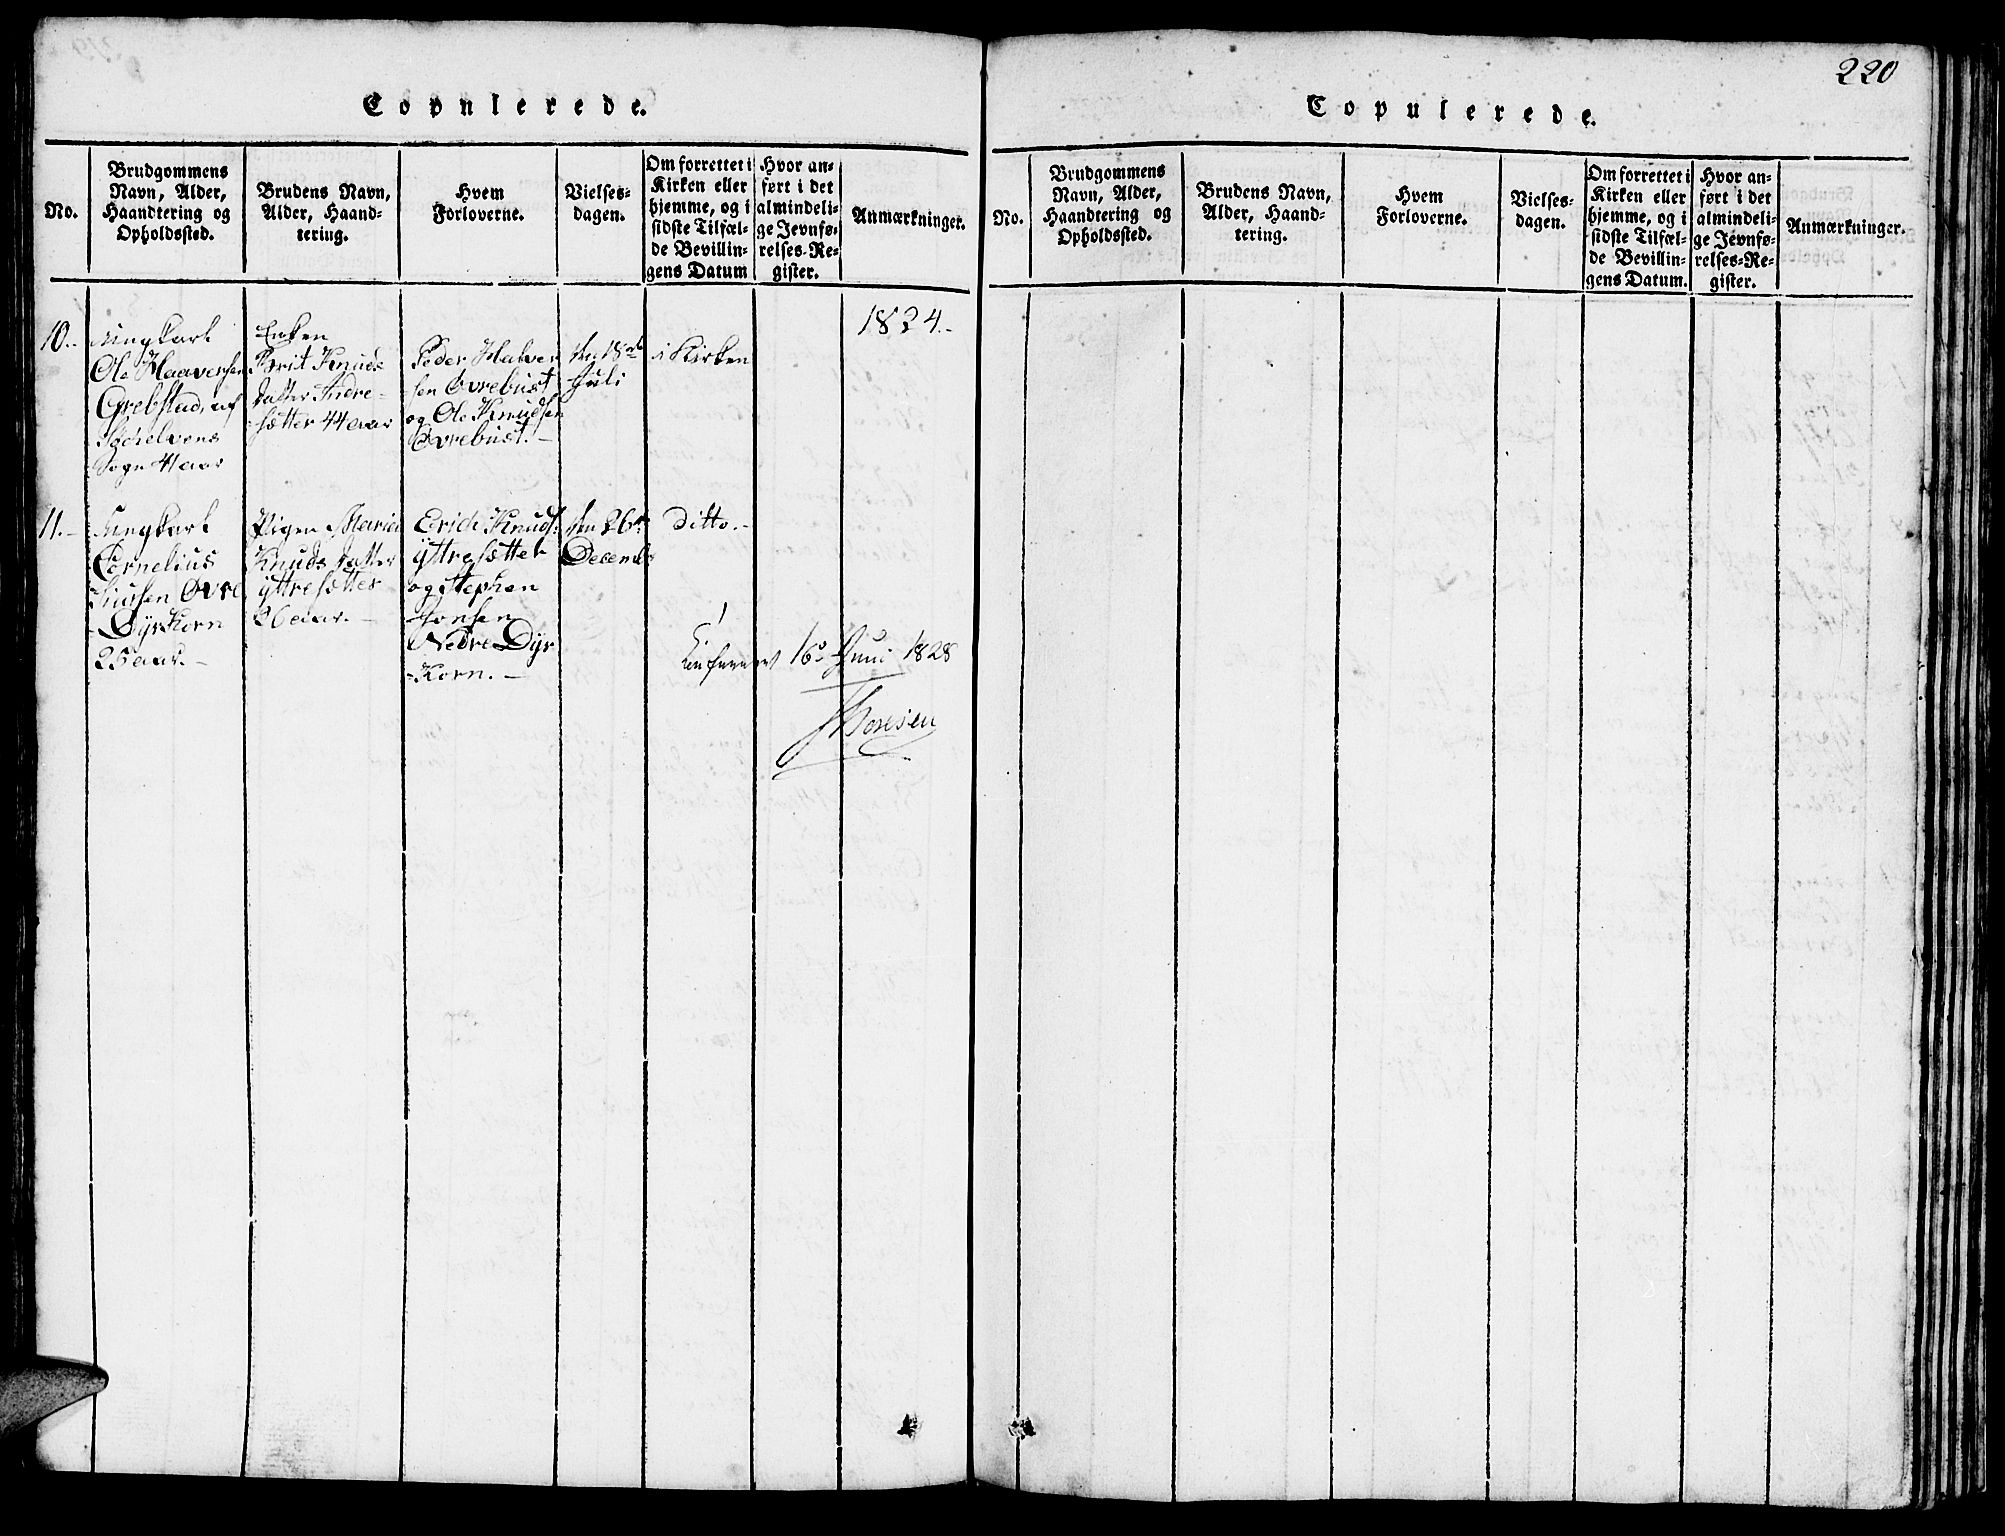 220
Copulerede.
No.
Brudgommens
Navn, Alder,
Haandtering og
Opholdssted.
Brudens Navn,
Alder, Haand-
tering.
Hvem
Forloverne.
Vielses-
dagen.
Om forrettet i
Kirken eller
hjemme, og i
sidste Tilfæl-
de Bevillin-
gens Datum
Hvor an-
ført i det
almindeli-
ge Jevnfø-
relses-Re-
gister.
Anmærkninger.
1824.-
10.-
Ungkarl
Ole Haaversen
Grebstad, af
Sogn 41 aar
Enken
Brit Knuds
datter Indre-
sætter 44 aar
Peder Halver
sen Ovrebust
og Ole Knudsen
Ovrebust.-
den 18de
Juli
i Kirken
11.-
Ungkarl
Cornelius
Øvre
Dyrkorn
25 aar.-
Pigen Maria
Knuds datter
yttresætter
26 aar.-
Erich Knuds.
yttresætter
og Stephen
Jonsen
Nedre Dyr
-korn.-
den 26de
Decembr
Ditto.-
16d Juni 1828
Thoresen
Copulerede.
No.
Brudgommens
Navn, Alder,
Haandtering og
Opholdssted.
Brudens Navn,
Alder, Haand-
tering.
Hvem
Forloverne.
Vielses-
dagen.
Om forrettet i
Kirken eller
hjemme, og i
sidste Tilfæl-
de Bevillin-
gens Datum.
Hvor an-
ført i det
almindeli-
ge Jevnfø-
relses-Re-
gister.
Anmærkninger.